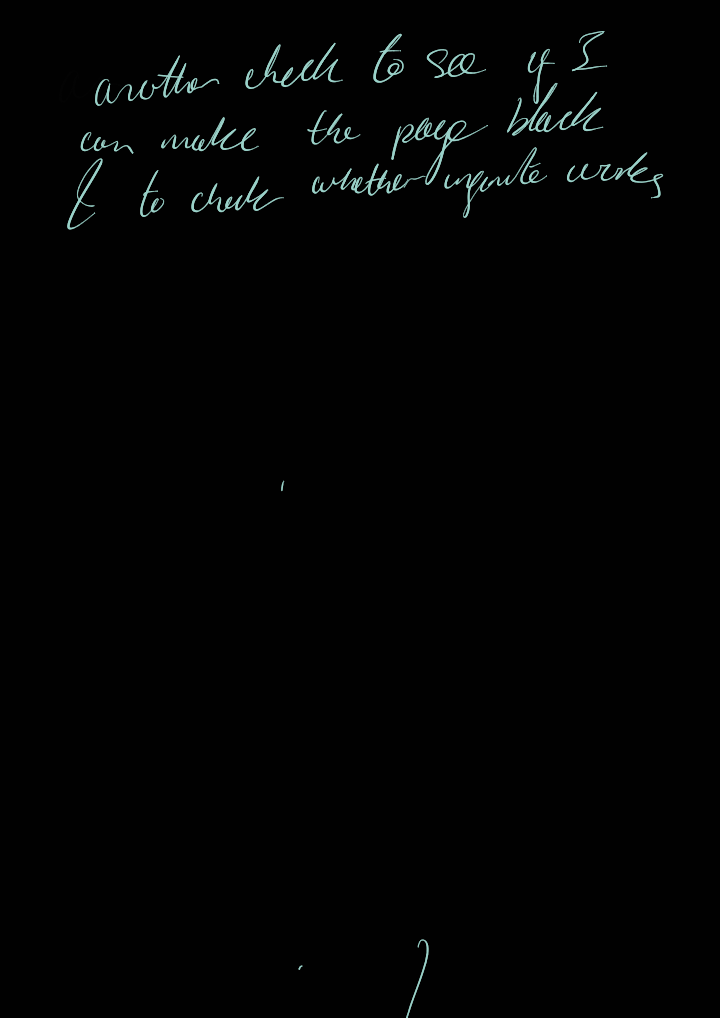 another check to see if I
can make the page black
& to check whether infinite works